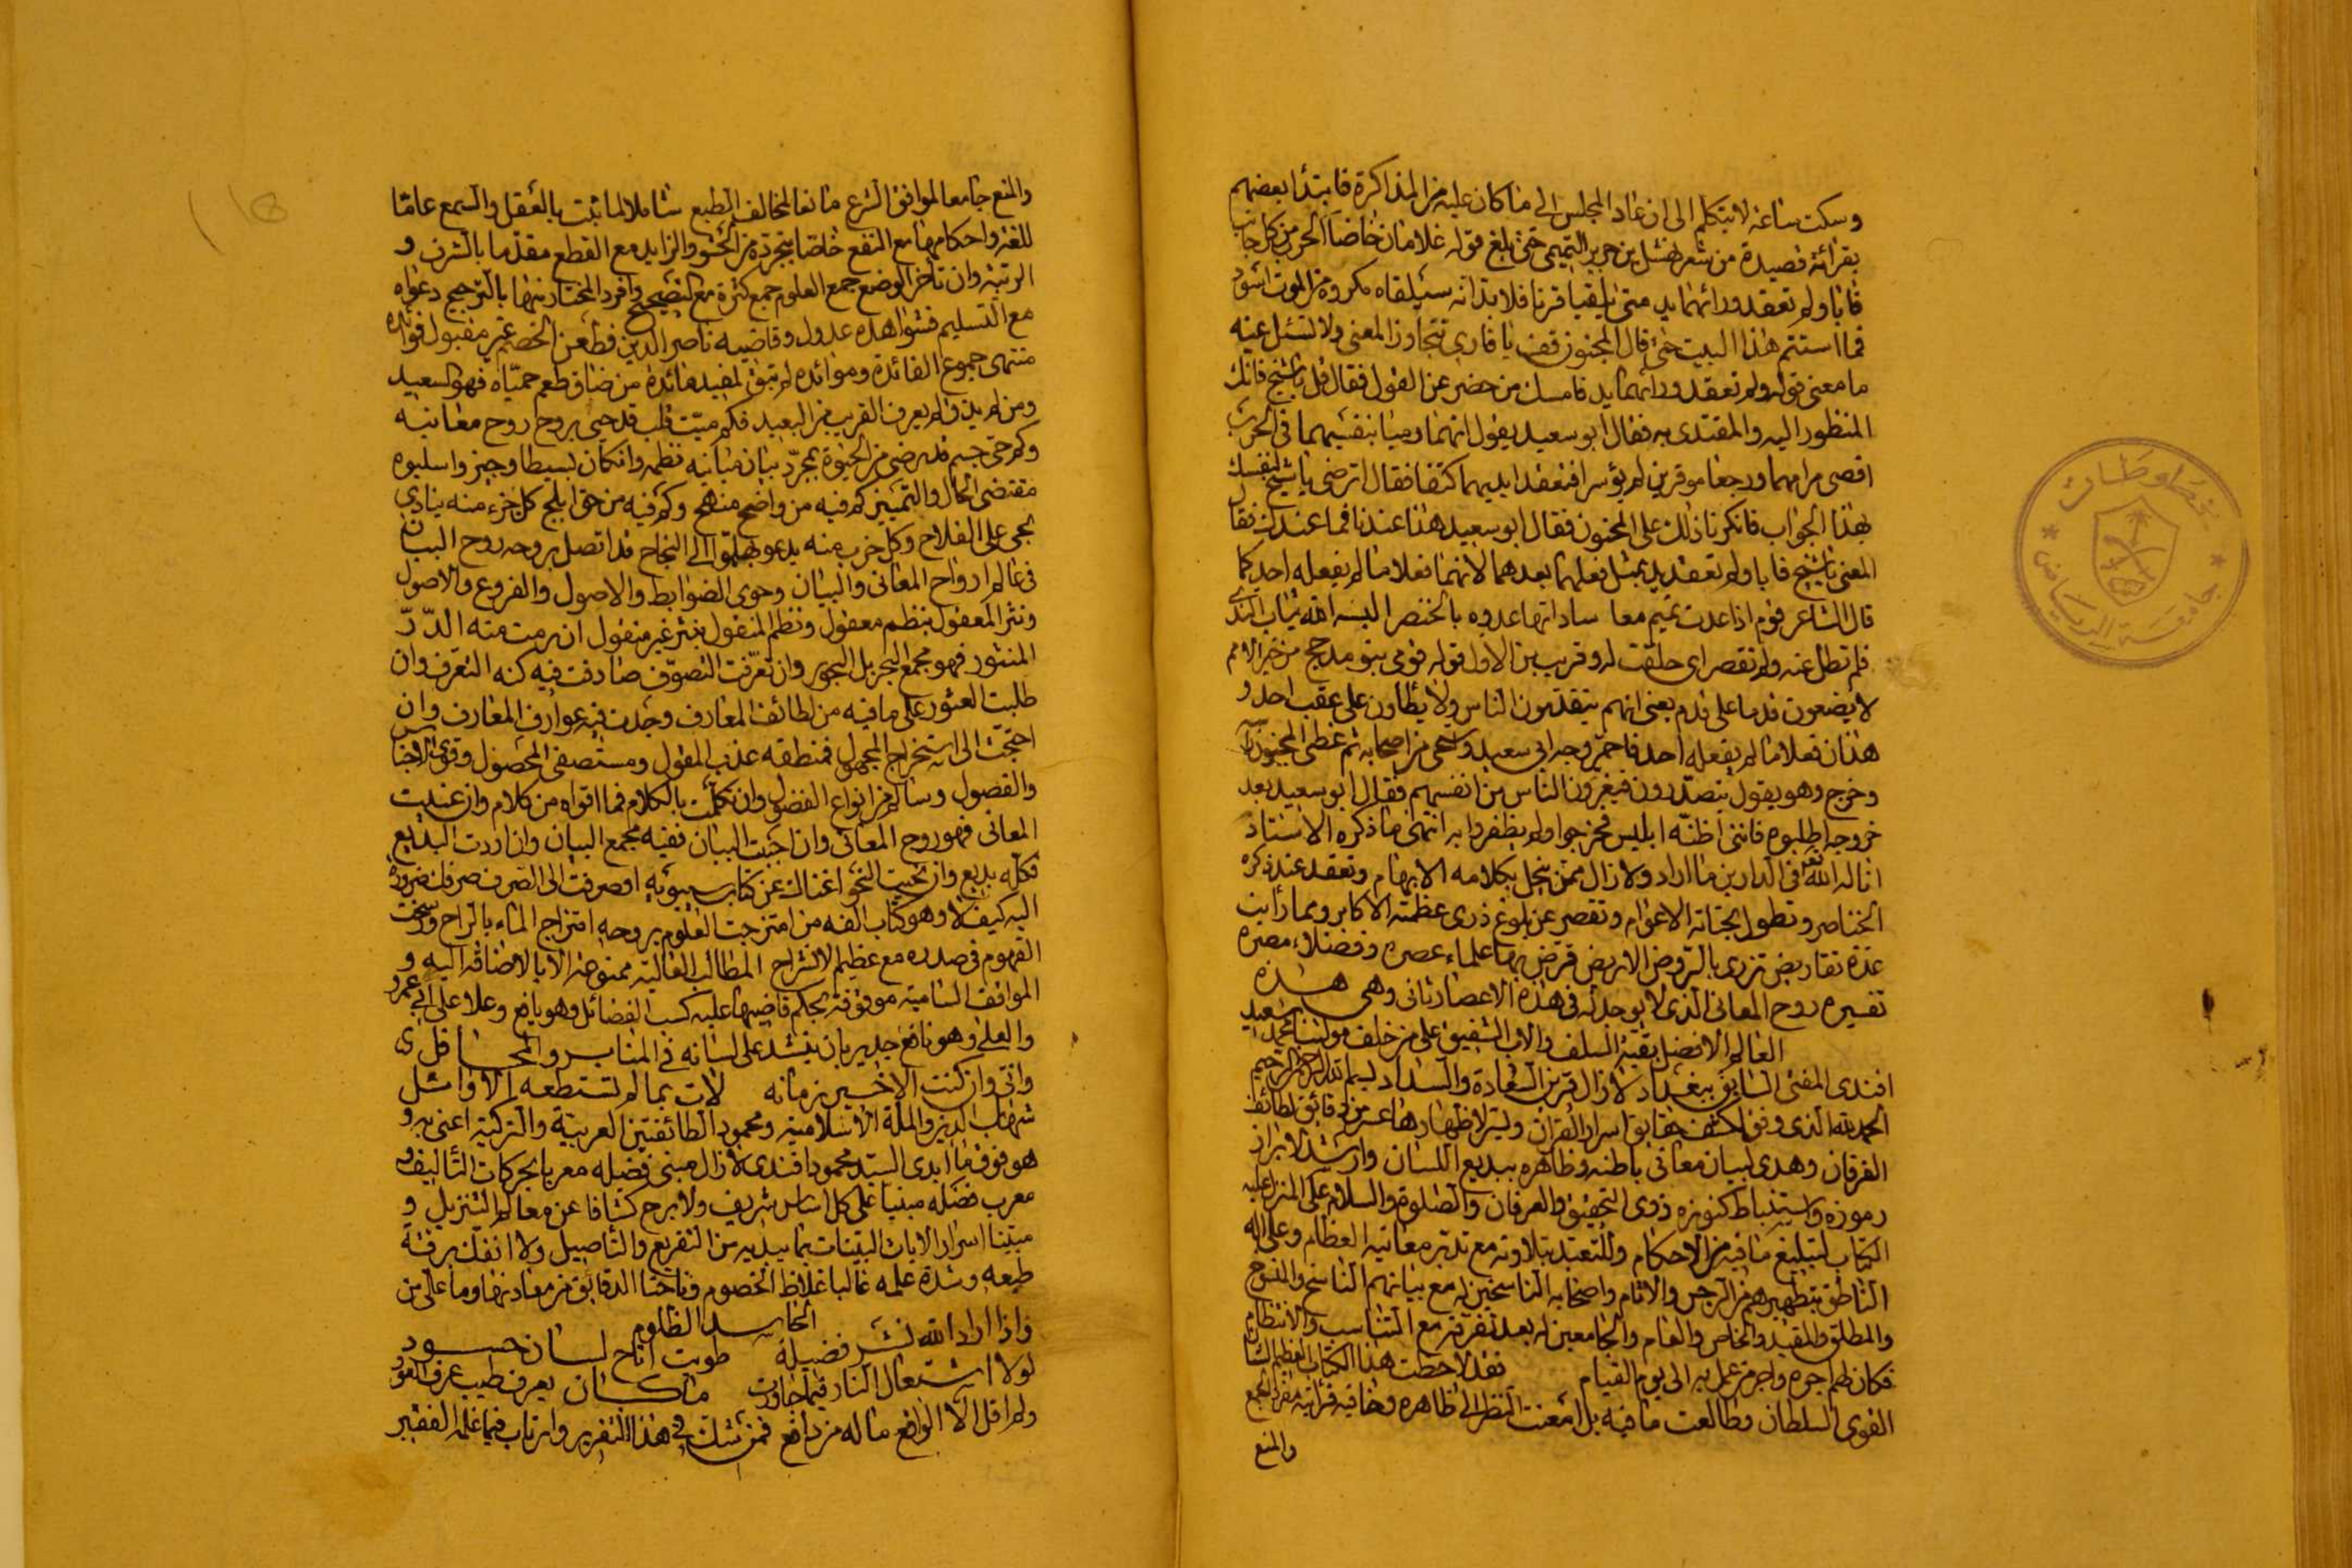 وسكت ساعة لا يتكلم الى ان عاد المجلس الى ما كان عليه من المذاكرة فابتدأ بعضهم
بقرائة قصيدة من شعر نهشل بن جرير التميمي حتى بلغ قوله غلامان خاضا الحرب من كل جانب
فآبا ولم تعقد ورائهما يد متى يلقيا قرنا فلا بد انه سيلقاه مكروه من الموت اسود
فما استتم هذا البيت حتى قال المجنون قف يا قاري تتجاوز المعنى ولا تسئل عنه
ما معنى قوله ولم تعقد ورائهما يد فامسك من حضر عن القول فقال قل يا شيخ فانك
المنظور اليه والمقتدى به فقال ابو سعيد يقول انهما رميا بنفسيهما في الحرب
اقصى مرامهما ورجعا موقرين لم يؤسرا فتعقد ايديهما كتفا فقال اترضى يا شيخ لنفسك
بهذا الجواب فانكرنا ذلك على المجنون فقال ابو سعيد هذا عندنا فما عندك فقال
المعنى يا شيخ فآبا ولم تعقد يد بمثل فعلهما بعدهما لانهما فعلا ما لم يفعله احد كما
قال الشاعر قوم اذا عدت تميم معا ساداتها عدوه بالخنصر البسه الله ثياب الندى
فلم تطل عنه ولم تقصر اى خلقت له وقريب من الاول قوله قومى بنو مدحج من خير الامم
لا يضعون قدما على قدم يعنى انهم يتقدمون الناس ولا يطأون على عقب احد و
هذان فعلا ما لم يفعله احد فاحمر وجه ابى سعيد واستحى من اصحابه ثم غطى المجنون رأسه
وخرج وهو يقول يتصدرون فيغرون الناس من انفسهم فقال ابو سعيد بعد
خروجه اطلبوه فاننى اظنه ابليس فخرجوا ولم يظفروا به انتهى ما ذكره الاستاذ
اناله الله تعالى فى الدارين ما اراد ولا زال ممن ينجل بكلامه الابهام وتعقد عند ذكره
الخناصر وتطول بحياته الاعوام وتقصر عن بلوغ ذرى عظمته الاكابر ومما رأيت
عدة تقاريض تزرى بالروض الاريض قرض بها علماء عصره وفضلاء مصره
تفسيره روح المعانى الذى لا يوجد له فى هذه الاعصار ثانى وهى هذه
العالم الافضل بقية السلف والاب الشفيق على من خلف مولينا محمد سعيد
افندى المفتى السابق ببغداد لا زال قرين السعادة والسداد بسم الله الرحمن الرحيم
الحمد لله الذى وفق لكشف حقايق اسرار القران ويسر لاظهار دقائق لطائف
الفرقان وهدى لبيان معانى باطنه وظاهره ببديع اللسان وارشد لابراز
رموزه واستنباط كنوزه ذوى التحقيق والعرفان والصلوة والسلام على المنزل عليه
الكتاب لتبليغ ما فيه من الاحكام وللتعبد بتلاوته مع تدبر معانيه العظام وعلى اله
الناطق بتطهيرهم من الرجس والاثام واصحابه الناسخين له مع بيانهم الناسخ والمنسوخ
والمطلق والمقيد والخاص والعام والجامعين له بعد تفرقته مع التناسب والانتظام
فكان لهم اجره واجر من عمل به الى يوم القيام فقد لاحظت هذا الكتاب العظيم الشان
القوى السلطان وطالعت ما فيه بل امعنت النظر الى ظاهره وخافيه فرأيته مفرد الجمع
والمنع
والمنع جامعا لموافق الشرع مانعا لمخالف الطبع شاملا لما ثبت بالعقل والسمع عاما
للغة واحكامها مع النفع خاصا بتجرده من الحشو والزايد مع القطع مقدما بالشرف و
الرتبة وان تأخر الوضع جمع العلوم جمع كثرة مع التصحيح وافرد المختار منها بالترجيح دعواه
مع التسليم فشواهده عدول وقاضيه ناصر الدين فطعن الخصم غير مقبول فوائده
منتهى جموع الفائدة وموائده لم تبق لمفيد مائدة من ضاق طعم حمياه فهو السعيد
ومن لم يذق لم يعرف القريب من البعيد فكم ميت قلب قد حيى بروح روح معانيه
وكم حى جسم قد رضى من الحيوة بمجرد بيان مبانيه نظمه وان كان بسيطا وجيز واسلوبه
مقتضى الحال والتمييز كم فيه من واضح منهج وكم فيه من حق ابلج كل جزء منه ينادى
بحى على الفلاح وكل حزب منه يدعو بهلموا الى النجاح قد اتصل بروحه روح البيان
فى عالم ارواح المعانى والبيان وحوى الضوابط والاصول والفروع والاصول
ونثر المعقول بنظم معقول ونظم المنقول بنثر غير منقول ان رمت منه الدر
المنثور فهو مجمع البحر بل البحور وان تعرفت التصوف صادفت فيه كنه التعرف وان
طلبت العثور على ما فيه من لطائف المعارف وجدت فيه عوارف المعارف وان
احتجت الى استخراج المجهول فمنطقه عذب المقول ومستصفى المحصول وقوى الاجناس
والفصول وسالم من انواع الفضول وان تكلمت بالكلام فما اقواه من كلام وان عنيت
المعانى فهو روح المعانى وان احببت البيان ففيه مجمع البيان وان اردت البديع
فكله بديع وان نحيت النحو اغناك عن كتاب سيبويه او صرفت الى الصرف صرفك ضرورة
اليه كيف لا وهو كتاب الفه من امتزجت العلوم بروحه امتزاج الماء بالراح ورسخت
الفهوم فى صدره مع عظيم الانشراح المطالب العالية ممنوعة الا بالاضافة اليه و
المواقف السامية موقوفة بحكم قاضيها عليه كسب الفضائل وهو يافع وعلا على ابى عمرو
والعلى وهو نافع جدير بان ينشد على لسانه فى المنابر والمحافل
وانى وان كنت الاخير زمانه لات بما لم تستطعه الاوائل
شهاب الدين والملة الاسلامية ومحمود الطائفتين العربية والتركية اعنى به و
هو فوق ما ابدى السيد محمود افندى لا زال مبنى فضله معربا بحركات التأليف و
معرب فضله مبنيا على كل اساس شريف ولا برح كشافا عن معالم التنزيل و
مبينا اسرار الايات البينات بما يبديه من التفريع والتأصيل ولا انفك برقة
طبعه وشدة علمه غالبا غلاظ الخصوم وناحتا الدقائق من معادنها وما على من
الحاسد الظلوم
واذا اراد الله نشر فضيلة طويت اتاح لسان حسود
لولا اشتعال النار فيما جاورت ما كان يعرف طيب عرف العود
ولم اقل الا الواقع ماله من دافع فمن شك فى هذا التقرير وارتاب فيما علمه الفقير
مخطوطات
جامعة الرياض